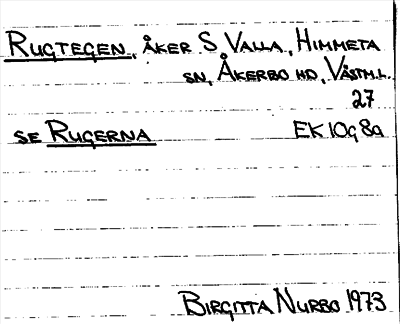 RUGTEGEN, ÅKER S. VALLA, HIMMETA
SN, ÅKERBO HD, VÄSTM.L.
27
SE RUGERNA EK 10g 8a
BIRGITTA NURBO 1973